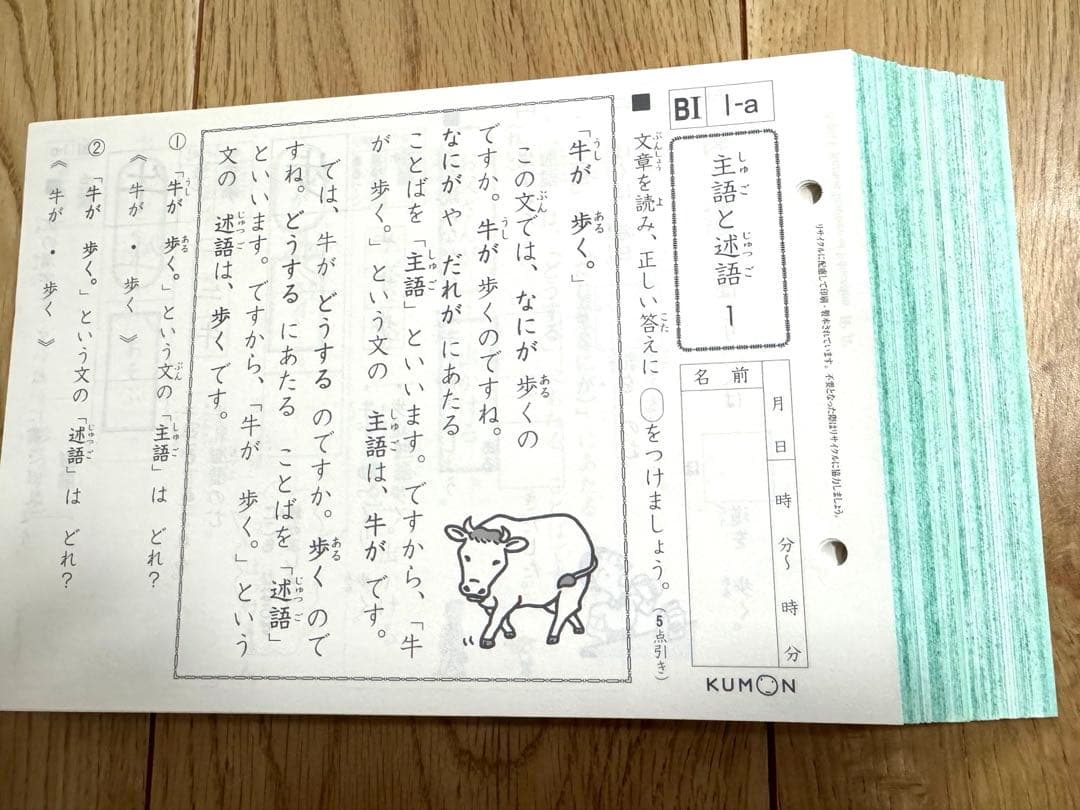 BI 1-a
主語と述語 1
月 日 時 分〜 時 分
名前
KUMON
リサイクルに配慮して印刷・製本されています。不要となった際はリサイクルに協力しましょう。
■ 文章を読み、正しい答えに をつけましょう。(5点引き)
「牛が 歩く。」
この文では、なにが 歩くの
ですか。牛が 歩くのですね。
なにが や だれが にあたる
ことばを 「主語」といいます。ですから、「牛
が 歩く。」という文の 主語は、牛が です。
では、牛が どうする のですか。歩く ので
すね。どうする にあたる ことばを 「述語」
といいます。ですから、「牛が 歩く。」という
文の 述語は、歩く です。
① 「牛が 歩く。」という文の 「主語」は どれ?
《 牛が ・ 歩く 》
② 「牛が 歩く。」という文の 「述語」は どれ?
《 牛が ・ 歩く 》